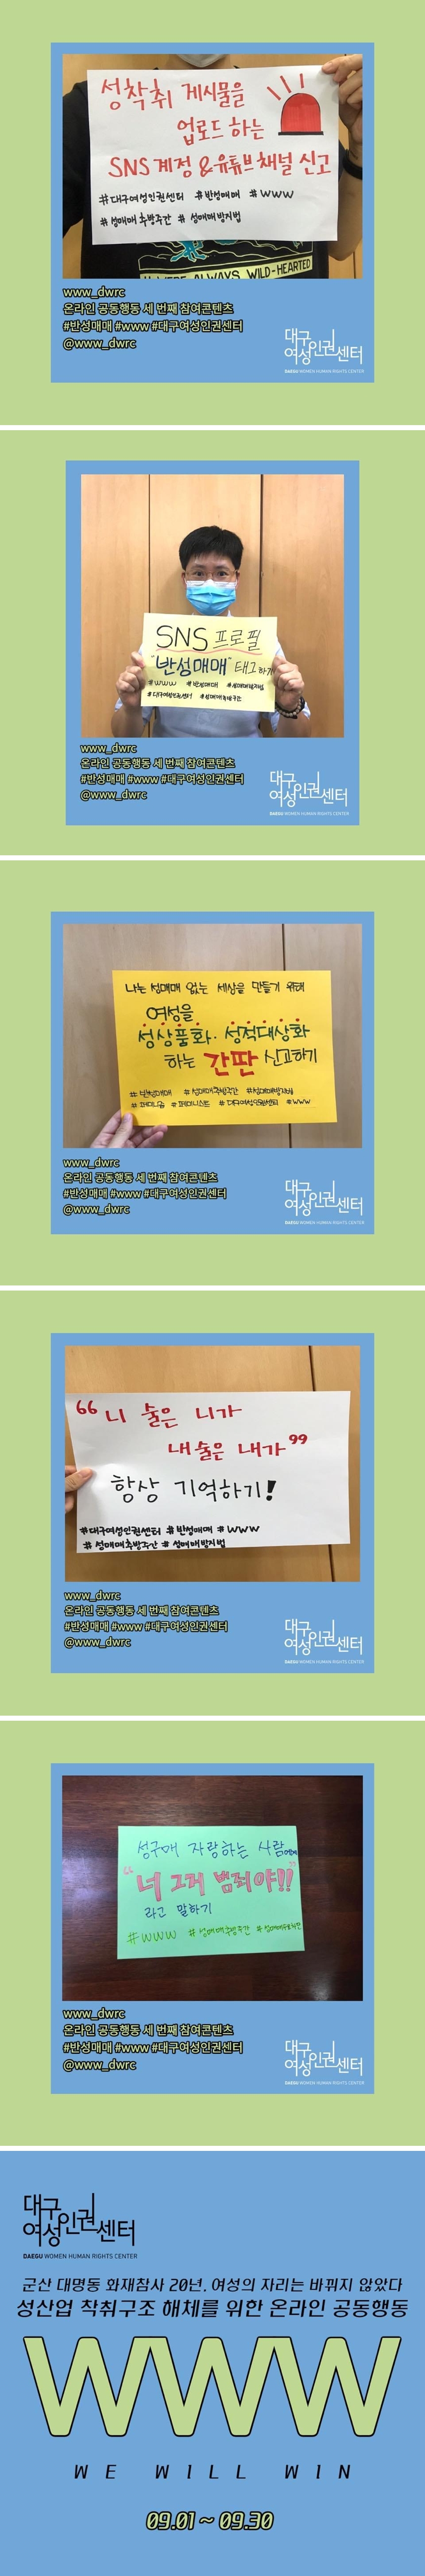 성착취 게시물을
업로드 하는
SNS계정 & 유튜브채널 신고
#대구여성인권센터 #반성매매 #WWW
#성매매추방주간 #성매매방지법
WERE ALWAYS WILD-HEARTED
www_dwrc
온라인 공동행동 세 번째 참여콘텐츠
#반성매매 #www #대구여성인권센터
@www_dwrc
대구
여성인권센터
DAEGU WOMEN HUMAN RIGHTS CENTER
SNS 프로필
"반성매매" 태그하기
#WWW #반성매매 #성매매방지법
#대구여성인권센터 #성매매추방주간
www_dwrc
온라인 공동행동 세 번째 참여콘텐츠
#반성매매 #www #대구여성인권센터
@www_dwrc
대구
여성인권센터
DAEGU WOMEN HUMAN RIGHTS CENTER
나는 성매매 없는 세상을 만들기 위해
여성을
성상품화·성적대상화
하는 간판 신고하기
#반성매매 #성매매추방주간 #성매매방지법
#페미니즘 #페미니스트 #대구여성인권센터 #WWW
www_dwrc
온라인 공동행동 세 번째 참여콘텐츠
#반성매매 #www #대구여성인권센터
@www_dwrc
대구
여성인권센터
DAEGU WOMEN HUMAN RIGHTS CENTER
"니 술은 니가
내 술은 내가"
항상 기억하기!
#대구여성인권센터 #반성매매 #WWW
#성매매추방주간 #성매매방지법
www_dwrc
온라인 공동행동 세 번째 참여콘텐츠
#반성매매 #www #대구여성인권센터
@www_dwrc
대구
여성인권센터
DAEGU WOMEN HUMAN RIGHTS CENTER
성구매 자랑하는 사람에게
"너 그거 범죄야!!"
라고 말하기
#WWW #성매매추방주간
www_dwrc
온라인 공동행동 세 번째 참여콘텐츠
#반성매매 #www #대구여성인권센터
@www_dwrc
대구
여성인권센터
DAEGU WOMEN HUMAN RIGHTS CENTER
대구
여성인권센터
DAEGU WOMEN HUMAN RIGHTS CENTER
군산 대명동 화재참사 20년, 여성의 자리는 바뀌지 않았다
성산업 착취구조 해체를 위한 온라인 공동행동
WWW
WE WILL WIN
09.01 ~ 09.30